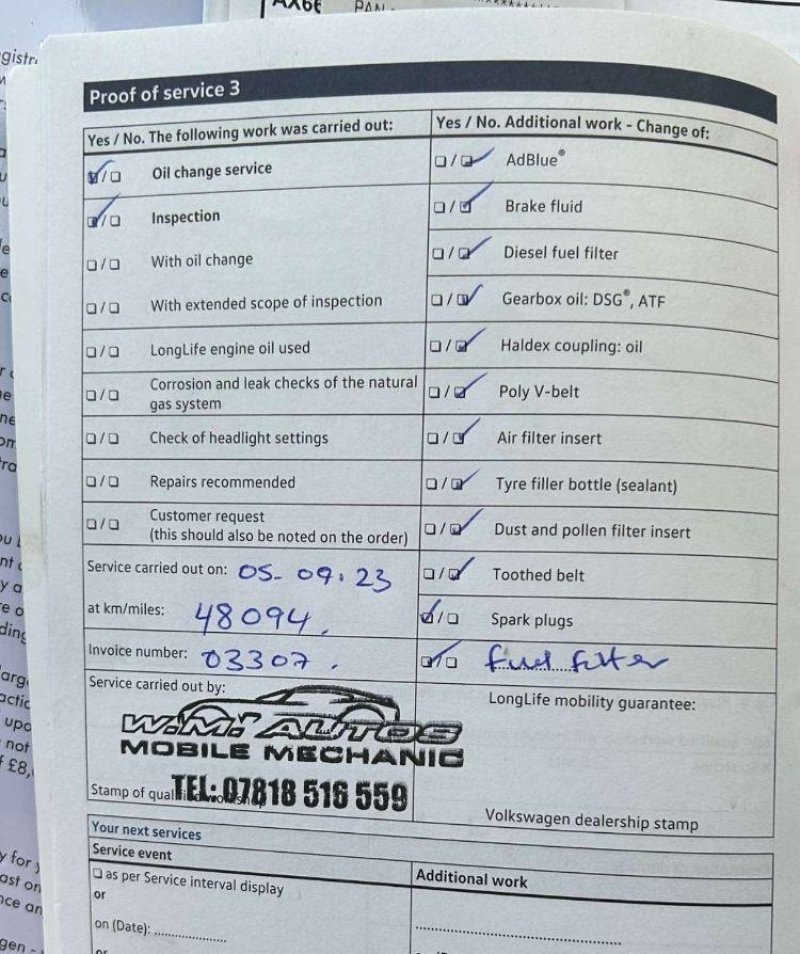 AX66 PAN
Proof of service 3
Yes / No. The following work was carried out:
☑/☐ Oil change service
☑/☐ Inspection
☐/☐ With oil change
☐/☐ With extended scope of inspection
☐/☐ LongLife engine oil used
☐/☐ Corrosion and leak checks of the natural
gas system
☐/☐ Check of headlight settings
☐/☐ Repairs recommended
☐/☐ Customer request
(this should also be noted on the order)
Service carried out on: 05-09.23
at km/miles: 48094.
Invoice number: 03307.
Service carried out by:
W.M. AUTOS
MOBILE MECHANIC
TEL: 07818 516 559
Stamp of qualified workshop
Yes / No. Additional work - Change of:
☐/☑ AdBlue®
☐/☑ Brake fluid
☐/☑ Diesel fuel filter
☐/☑ Gearbox oil: DSG®, ATF
☐/☑ Haldex coupling: oil
☐/☑ Poly V-belt
☐/☑ Air filter insert
☐/☑ Tyre filler bottle (sealant)
☐/☑ Dust and pollen filter insert
☐/☑ Toothed belt
☑/☐ Spark plugs
☑/☐ fuel filter
LongLife mobility guarantee:
Volkswagen dealership stamp
Your next services
Service event
☐ as per Service interval display
or
on (Date):
or
Additional work